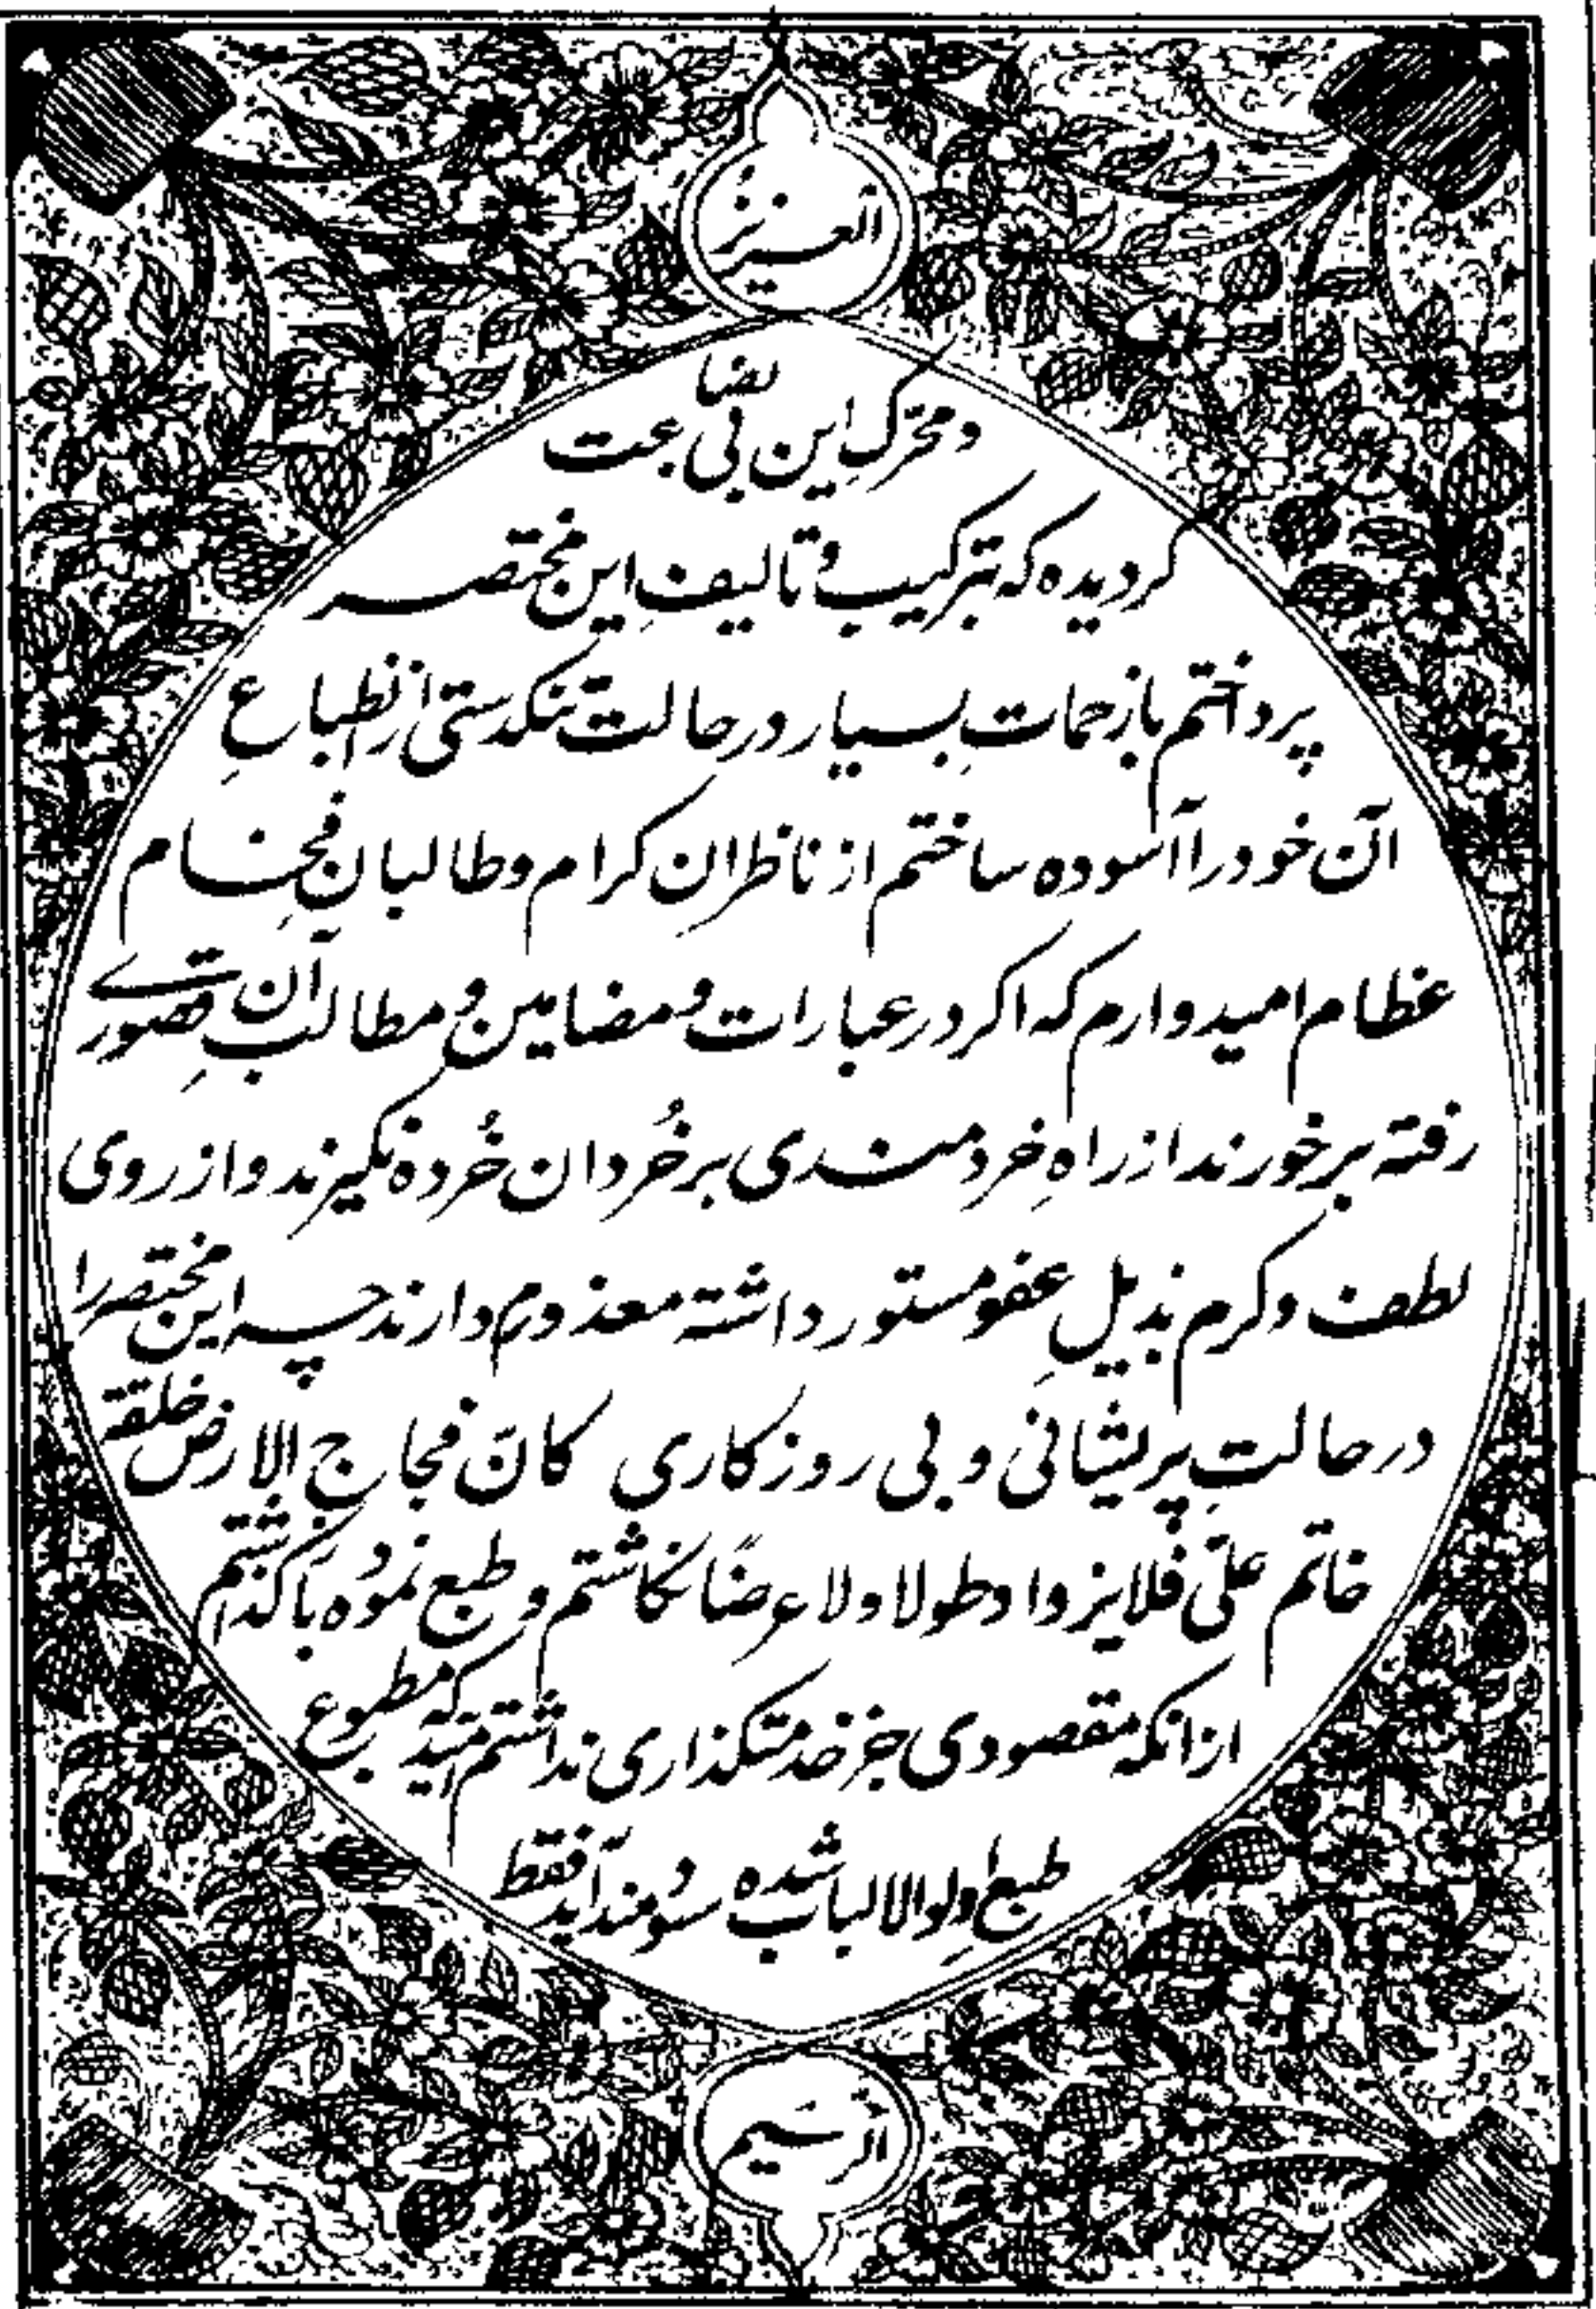 العزیزُ
و محرّکِ این بی بضاعت
کردیده که بترکیب و تالیفِ این مختصر
پرداختم با زحماتِ بسیار در حالت تنکدستی از انطباعِ
آن خود را آسوده ساختم از ناظرانِ کرام و طالبان فِخام
عظام امیدوارم که اکر در عبارات و مضامین و مطالبِ آن قصوری
رفته بر خورند از راهِ خردمندی بر خُردان خُرده نکیرند و از روی
لطف و کرم بذیلِ عفو مستور داشته معذورم دارند چه این مختصر را
در حالتِ پریشانی و بی روزکاری کانّ فجاج الارض حلقة
خاتم علیّ فلا یزداد طولا ولا عرضًا نکاشتم و طبع نموده بآکذاشتم
از انکه مقصودی جز خدمتکذاری نداشتم امید که مطبوع
طبع اولو الالباب شده سودمند آید فقط
الرّحیم